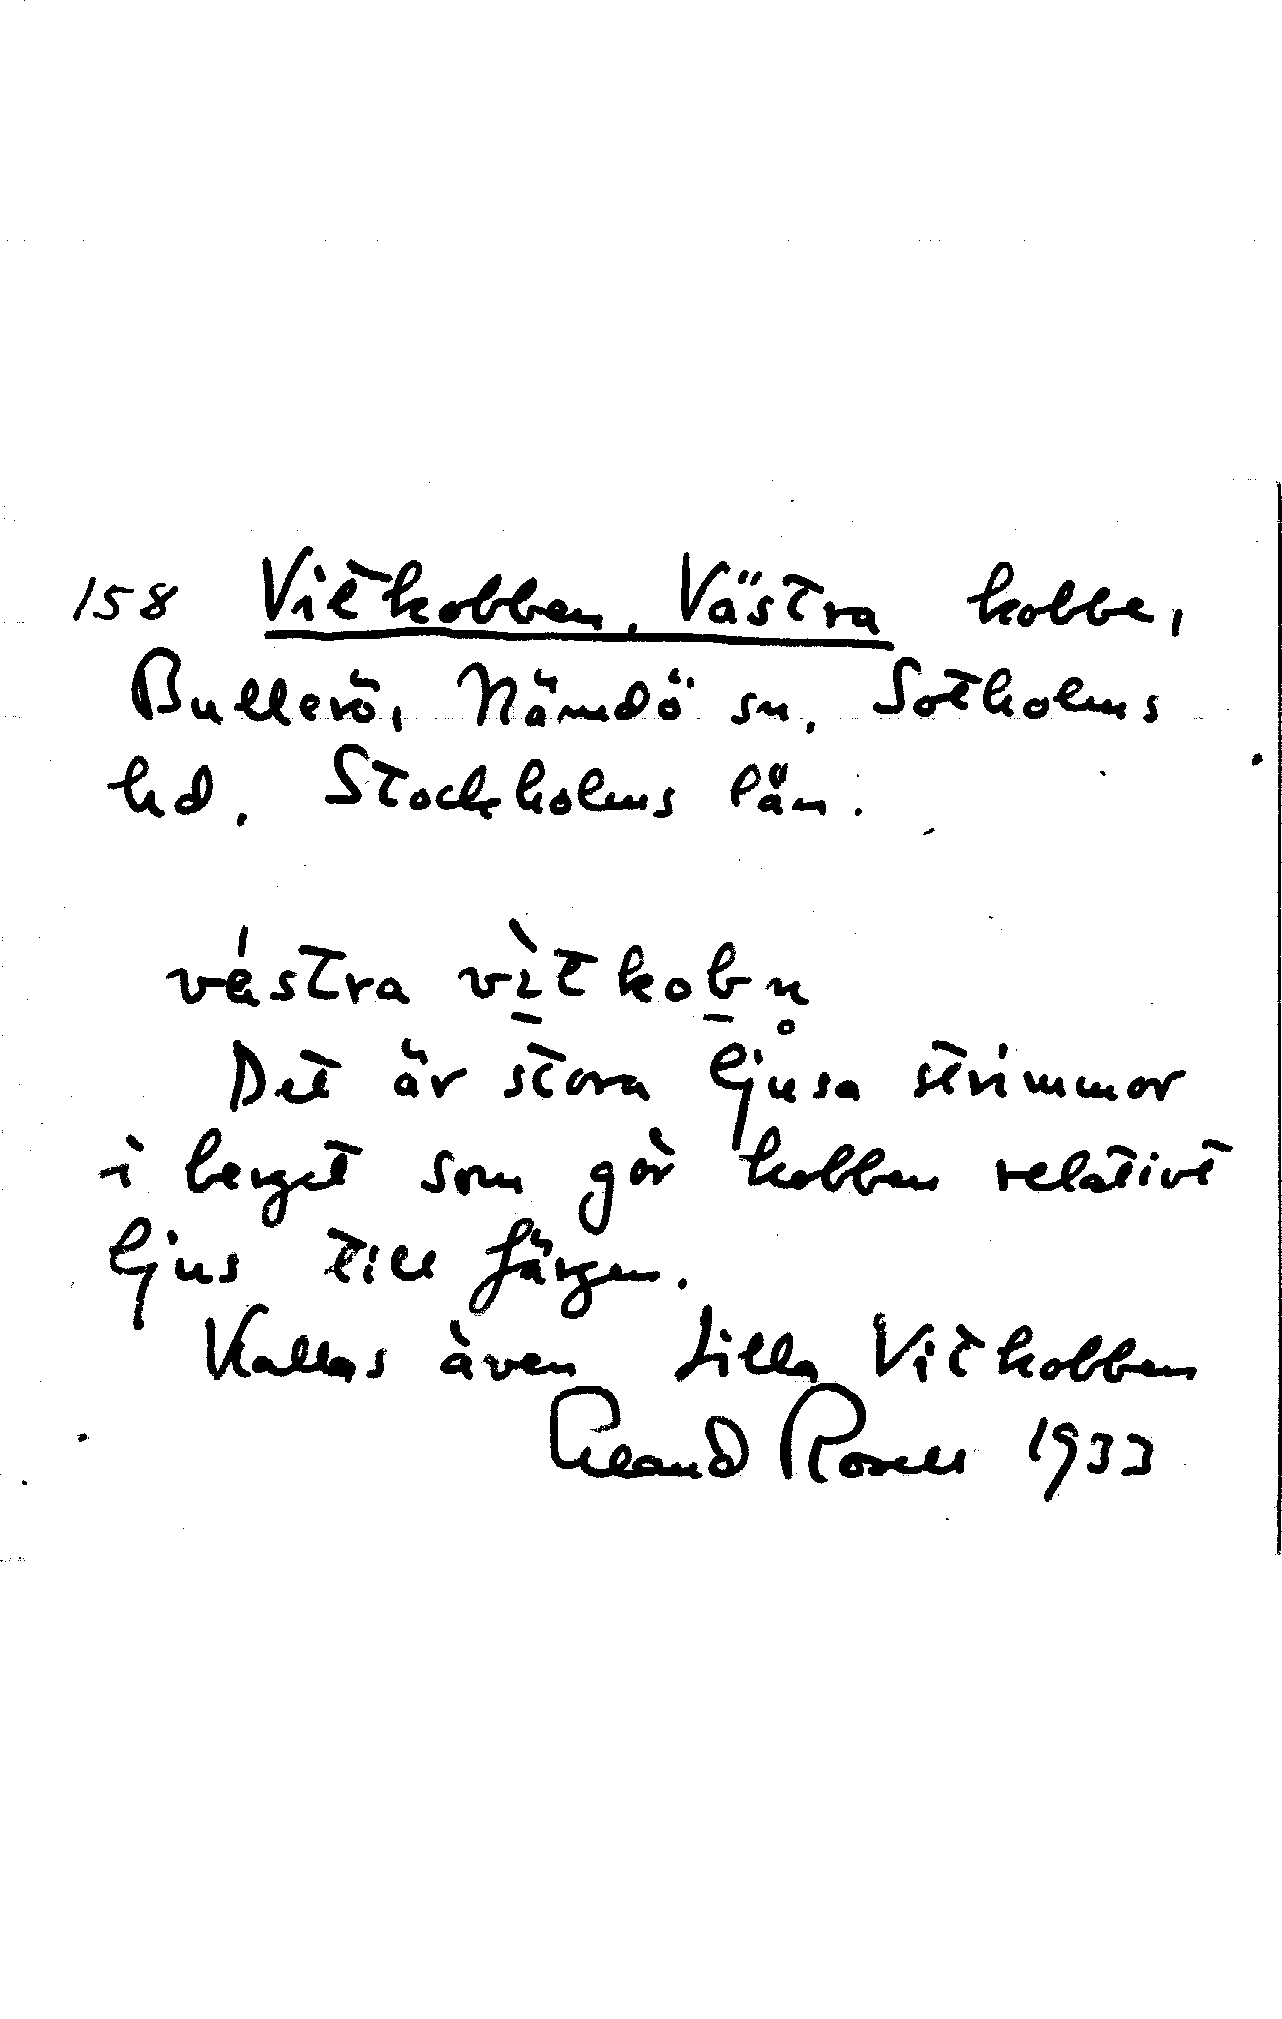 158 Vitkobben, Västra kobbe,
Bullerö, Nämdö sn, Sotholms
hd, Stockholms län.
västra vìtkobn̥
Det är stora ljusa strimmor
i berget som gör kobben relativt
ljus till färgen.
Kallas även Lilla Vitkobben
Roland Roselle 1933